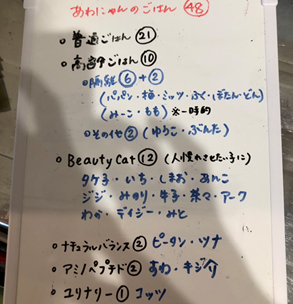 あわにゃんのごはん ㊽
○ 普通ごはん ㉑
○ 高齢用ごはん ⑩
○ 隔離 ⑥ + ②
(パパン・梅・ミッツ・ふく・ぼたん・どん)
(みーこ・もも) ※一時的
○ その他 ② (ゆうこ・ぶんた)
○ Beauty Cat ⑫ (人慣れさせたい子に)
タケ子・いち・しまお・あんこ
ジジ・みのり・牛子・茶々・アーク
わか・デイジー・みと
○ ナチュラルバランス ② ピータン・ツナ
○ アミノペプチド ② すわ・キジ介
○ ユリナリー ① コッツ